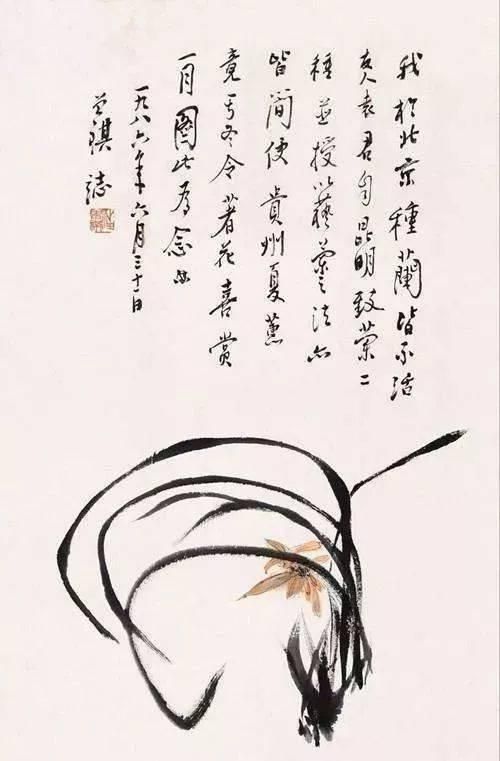 我於北京種蘭皆不活
友人袁君自昆明致蘭二
種並授以藝蘭之法亦
皆簡便貴州夏蕙
竟于冬令著花喜賞
一月圖此為念也
一九八六年六月三十一日
曾祺誌